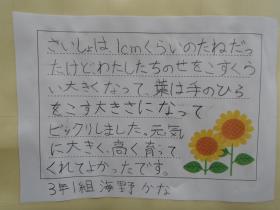 さいしょは、1cmくらいのたねだっ
たけど、わたしたちのせをこすくら
い大きくなって、葉は手のひら
をこす大きさになって
ビックリしました。元気
に大きく、高く育って
くれてよかったです。
3年1組 海野 かな